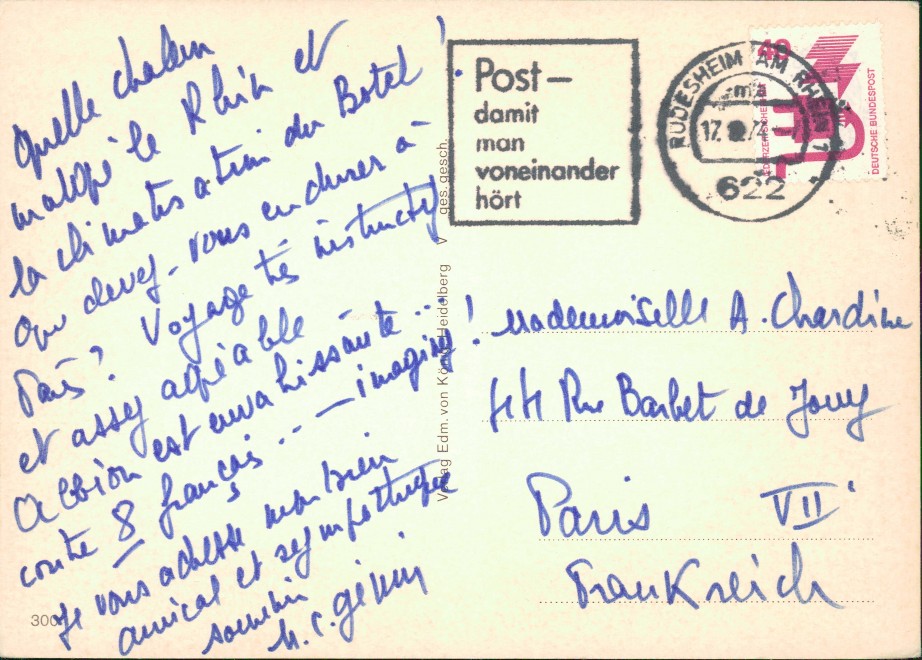 Quelle chaleur
malgré le Rhin et
la climatisation du Botel !
Que devez-vous endurer à
Paris ? Voyage très instructif
et assez agréable
Albion est envahissante...
contre 8 français... — imaginez !
Je vous adresse mon bien
amical et sympathique
souvenir
Post –
damit
man
voneinander
hört
RÜDESHEIM AM RHEIN 1
17. 74
622
40
DEUTSCHE BUNDESPOST
Mademoiselle A. Chardine
44 Rue Barbet de Jouy
Paris VII
Frankreich
Verlag Edm. von König Heidelberg ges. gesch.
300